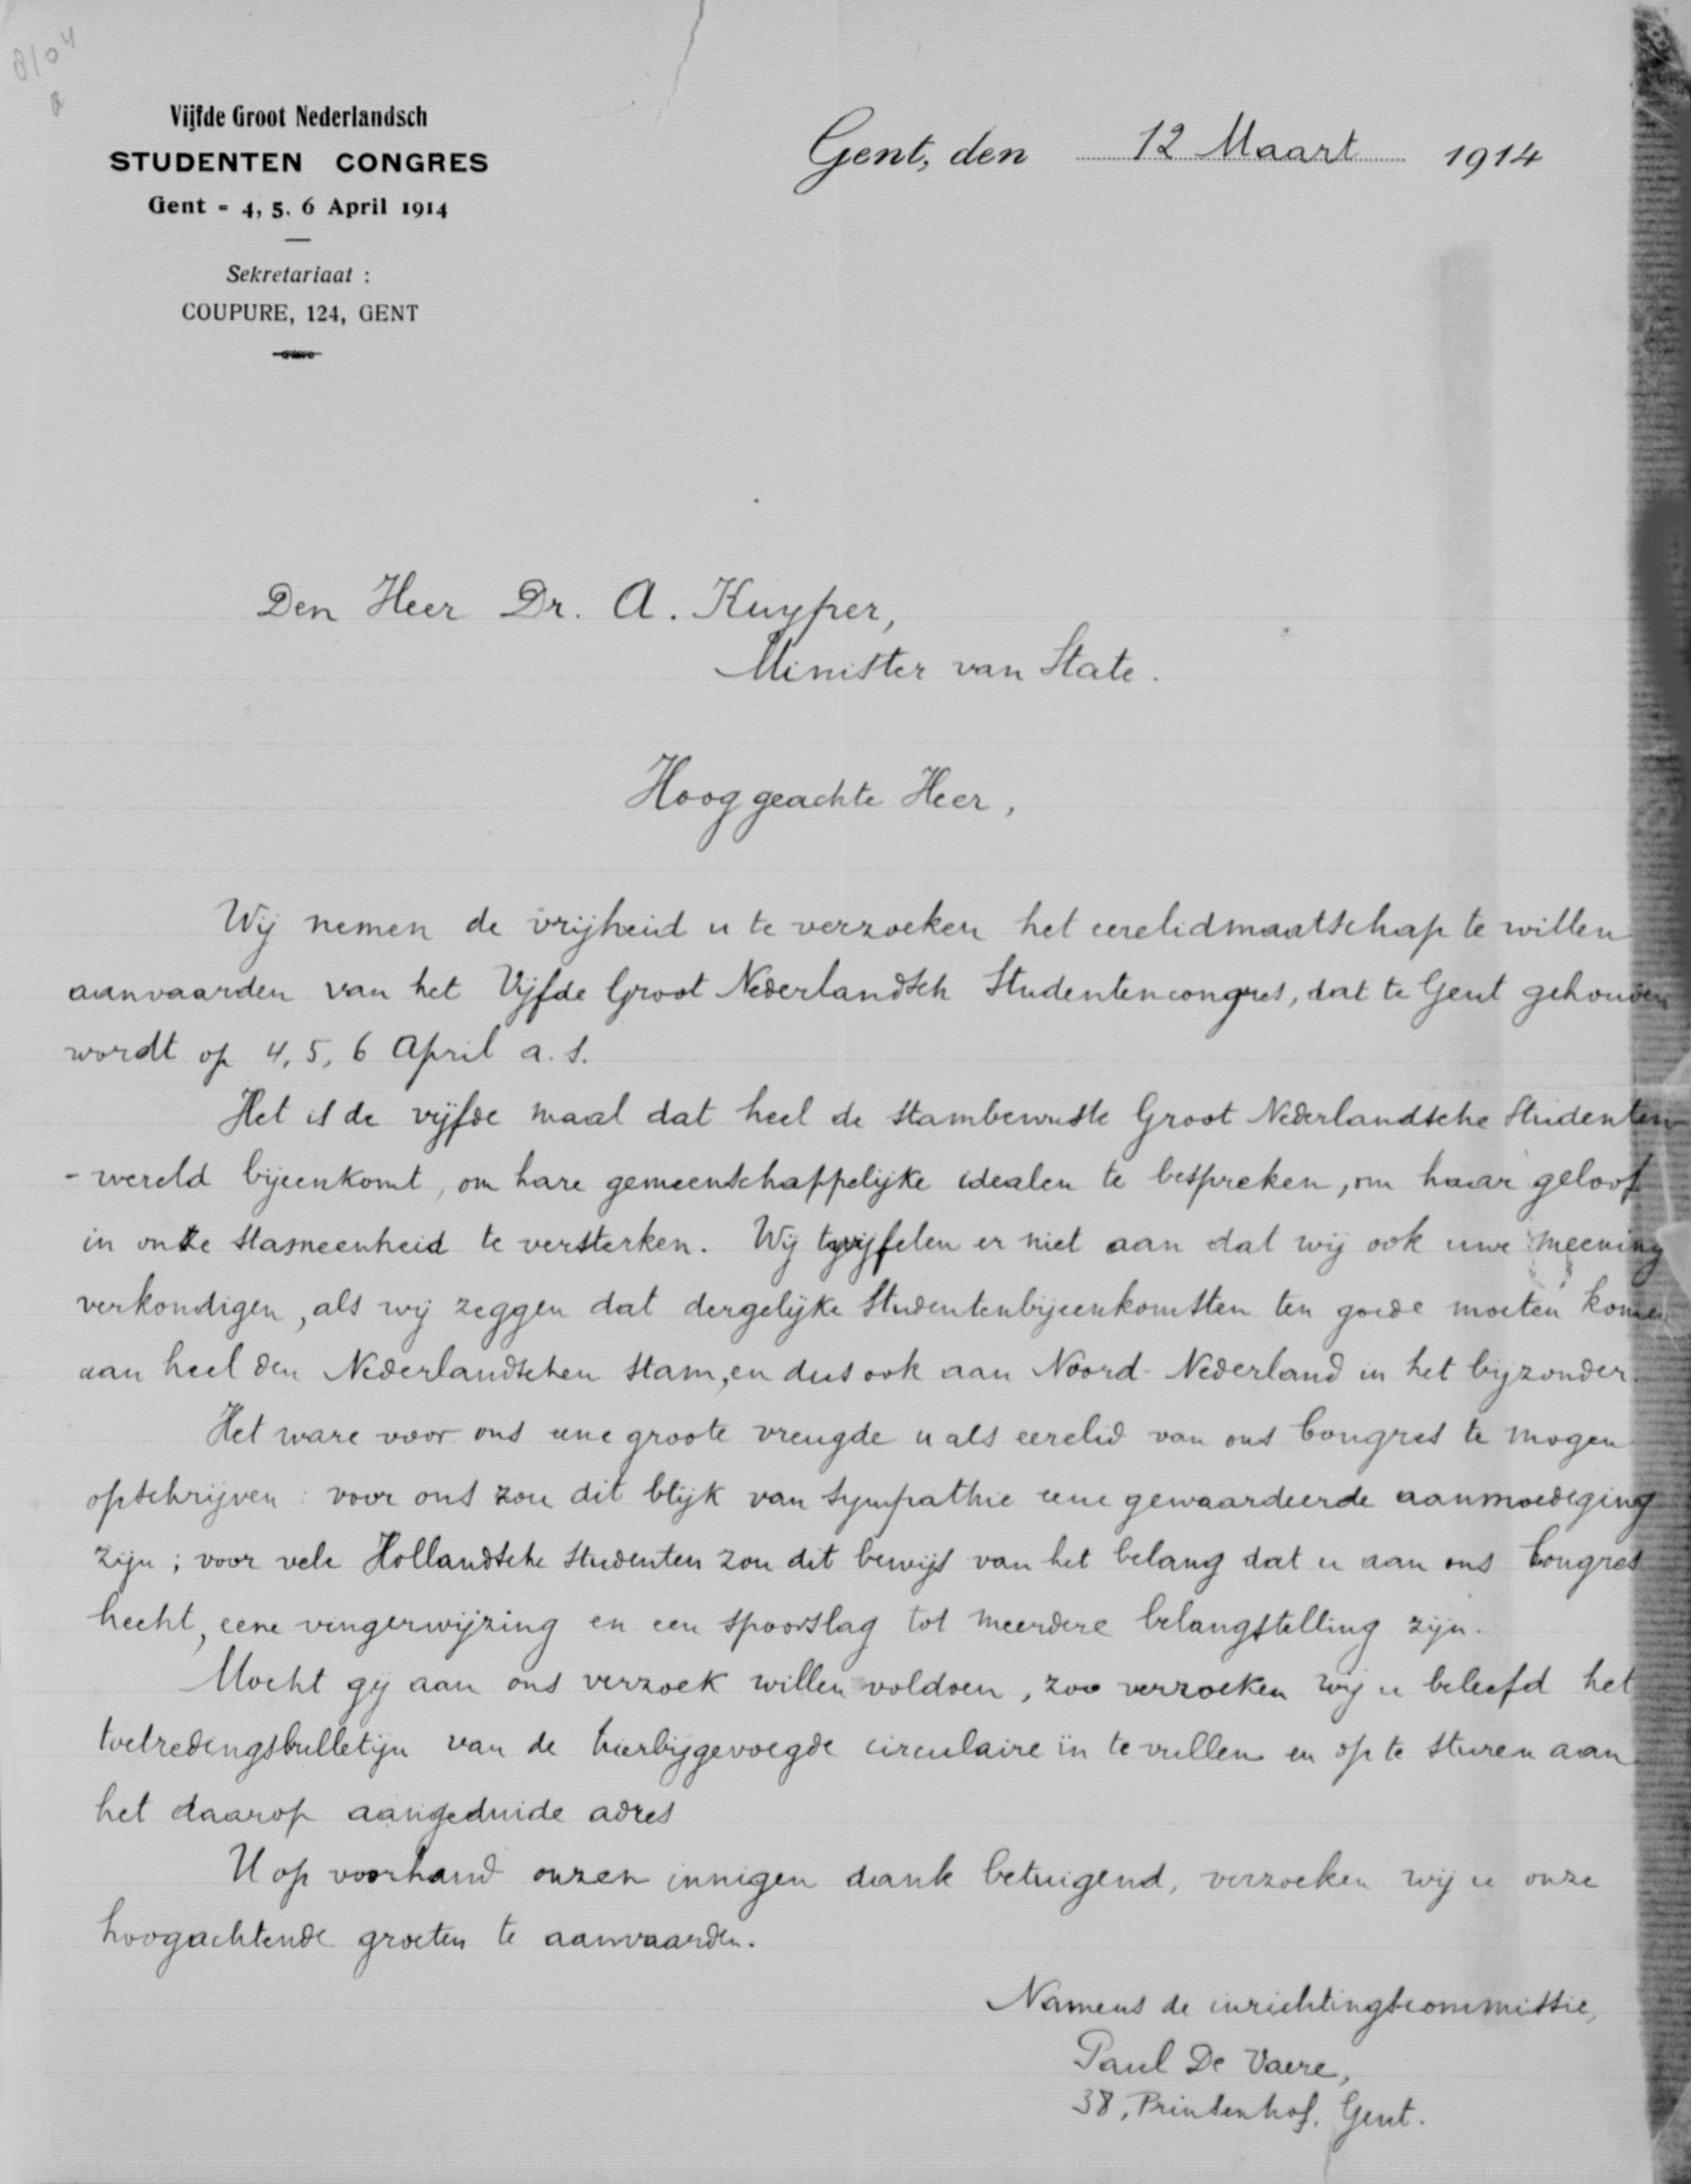 8104
a
Vijfde Groot Nederlandsch
STUDENTEN CONGRES
Gent - 4, 5, 6 April 1914
Sekretariaat :
COUPURE, 124, GENT
Gent, den 12 Maart 1914
Den Heer Dr. A. Kuyper,
Minister van State.
Hooggeachte Heer,
Wij nemen de vrijheid u te verzoeken het eerelidmaatschap te willen
aanvaarden van het Vijfde Groot Nederlandsch Studentencongres, dat te Gent gehouden
wordt op 4, 5, 6 April a. s.
Het is de vijfde maal dat heel de stambewuste Groot Nederlandsche Studenten
- wereld bijeenkomt, om hare gemeenschappelijke idealen te bespreken, om haar geloof
in onze stameenheid te versterken. Wij twijfelen er niet aan dat wij ook uwe meening
verkondigen, als wij zeggen dat dergelijke Studentenbijeenkomsten ten goede moeten komen
aan heel den Nederlandschen stam, en dus ook aan Noord-Nederland in het bijzonder.
Het ware voor ons eene groote vreugde u als eerelid van ons Congres te mogen
opschrijven : voor ons zou dit blijk van sympathie eene gewaardeerde aanmoediging
zijn ; voor vele Hollandsche studenten zou dit bewijs van het belang dat u aan ons Congres
hecht, eene vingerwijzing en een spoorslag tot meerdere belangstelling zijn.
Mocht gij aan ons verzoek willen voldoen, zoo verzoeken wij u beleefd het
toetredingsbulletijn van de hierbijgevoegde circulaire in te vullen en op te sturen aan
het daarop aangeduide adres
U op voorhand onzen innigen dank betuigend, verzoeken wij u onze
hoogachtende groeten te aanvaarden.
Namens de inrichtingscommissie,
Paul De Vaere,
38, Prinsenhof, Gent.